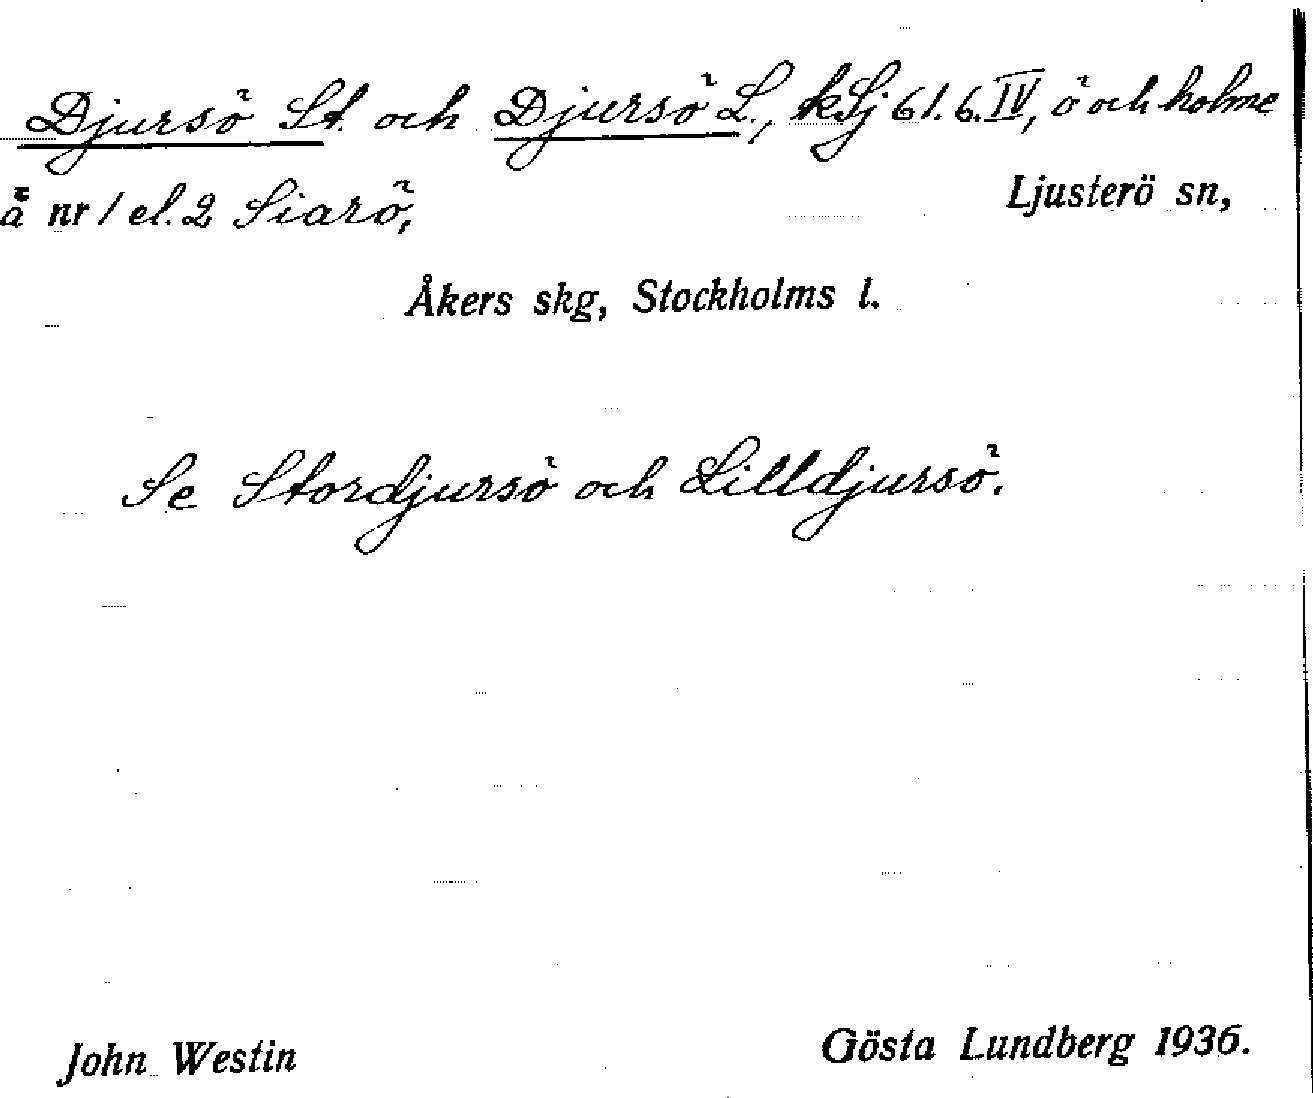 Djursö St. och Djursö L., kSj 61.6.IV, ö och holme
å nr 1 el. 2 Siarö,
Ljusterö sn,
Åkers skg, Stockholms l.
Se Stordjursö och Lilldjursö.
John Westin
Gösta Lundberg 1936.